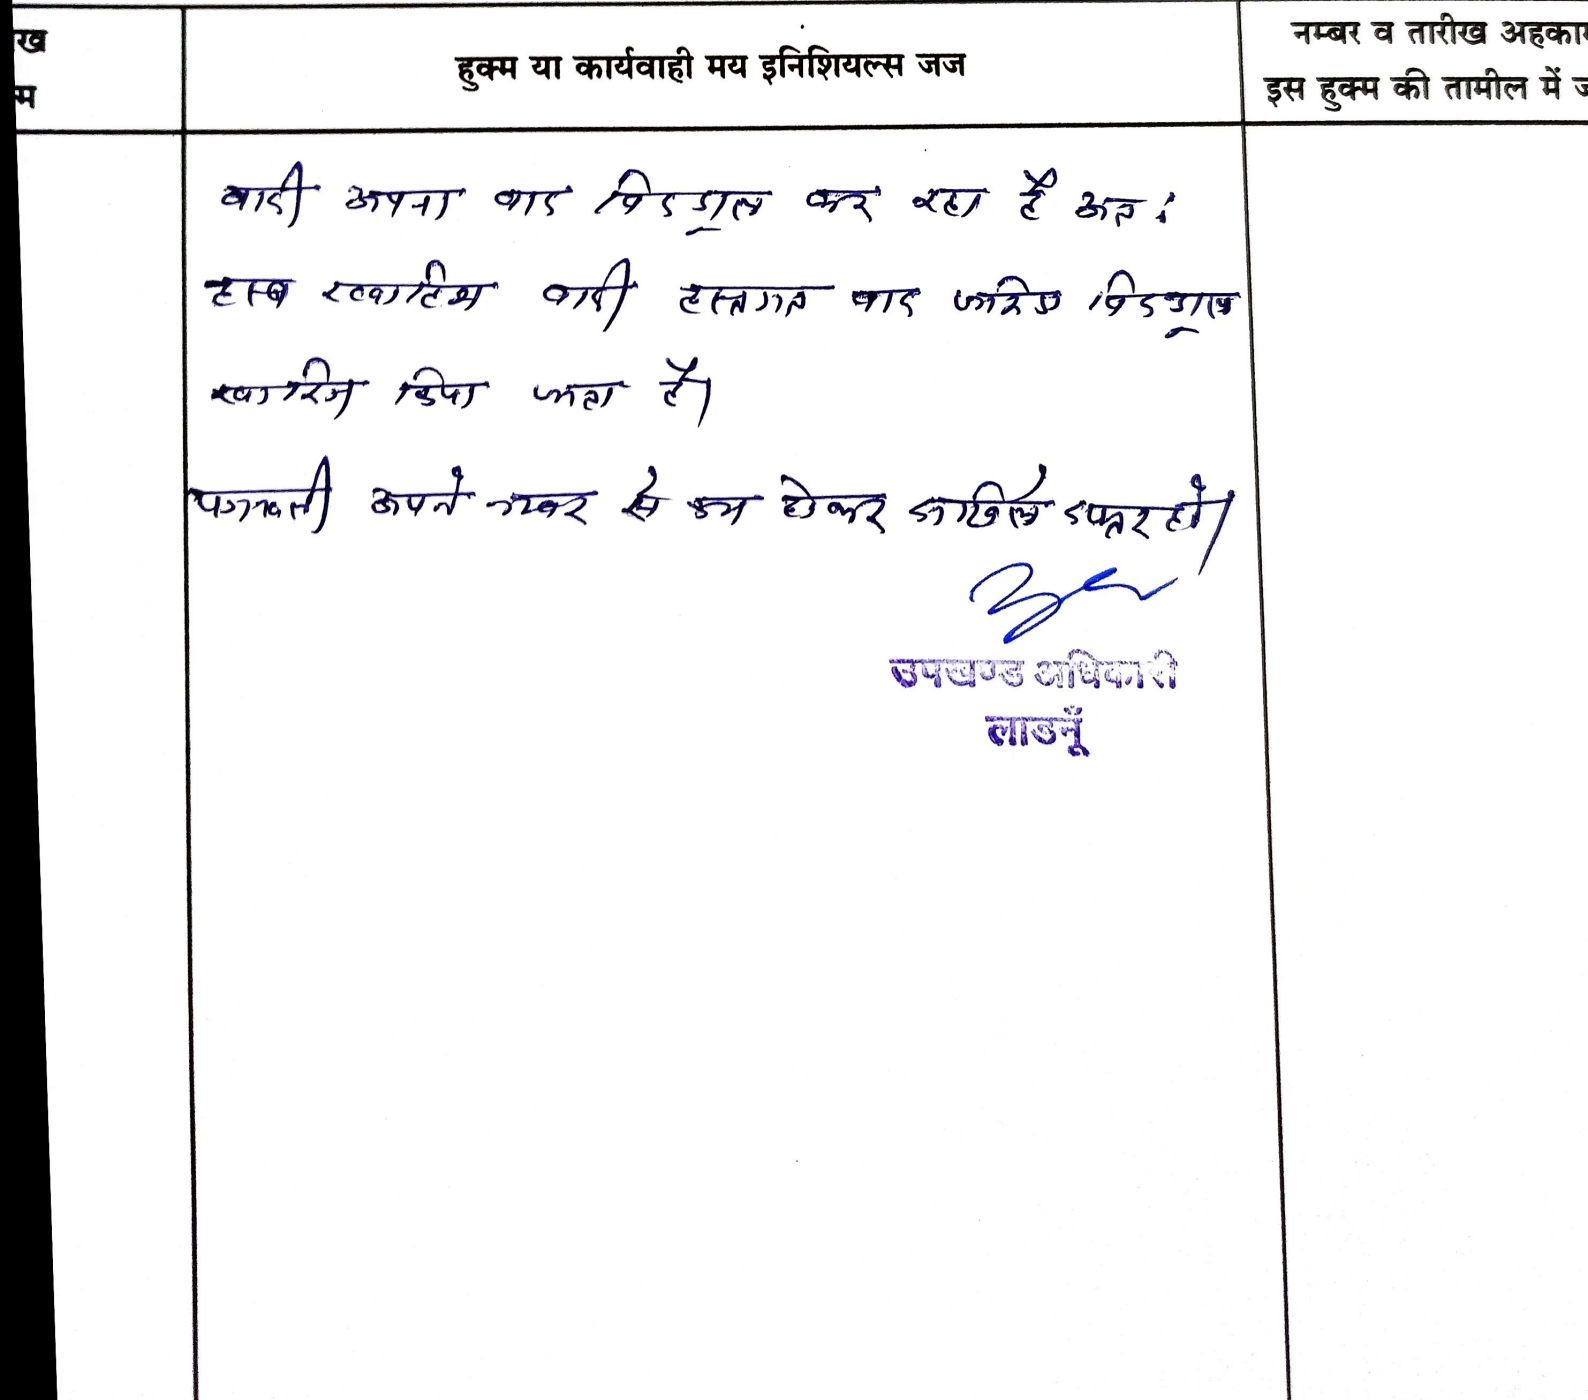 ख
म
हुक्म या कार्यवाही मय इनिशियल्स जज
नम्बर व तारीख अहकाम
इस हुक्म की तामील में ज
वादी अपना वाद विड्रॉल कर रहा है अतः
हस्ब ख्वाहिश वादी हस्तगत वाद जरिए विड्रॉल
खारिज किया जाता है।
पत्रावली अपने नम्बर से कम होकर दाखिल दफ्तर हो।
उपखण्ड अधिकारी
लाडनूँ